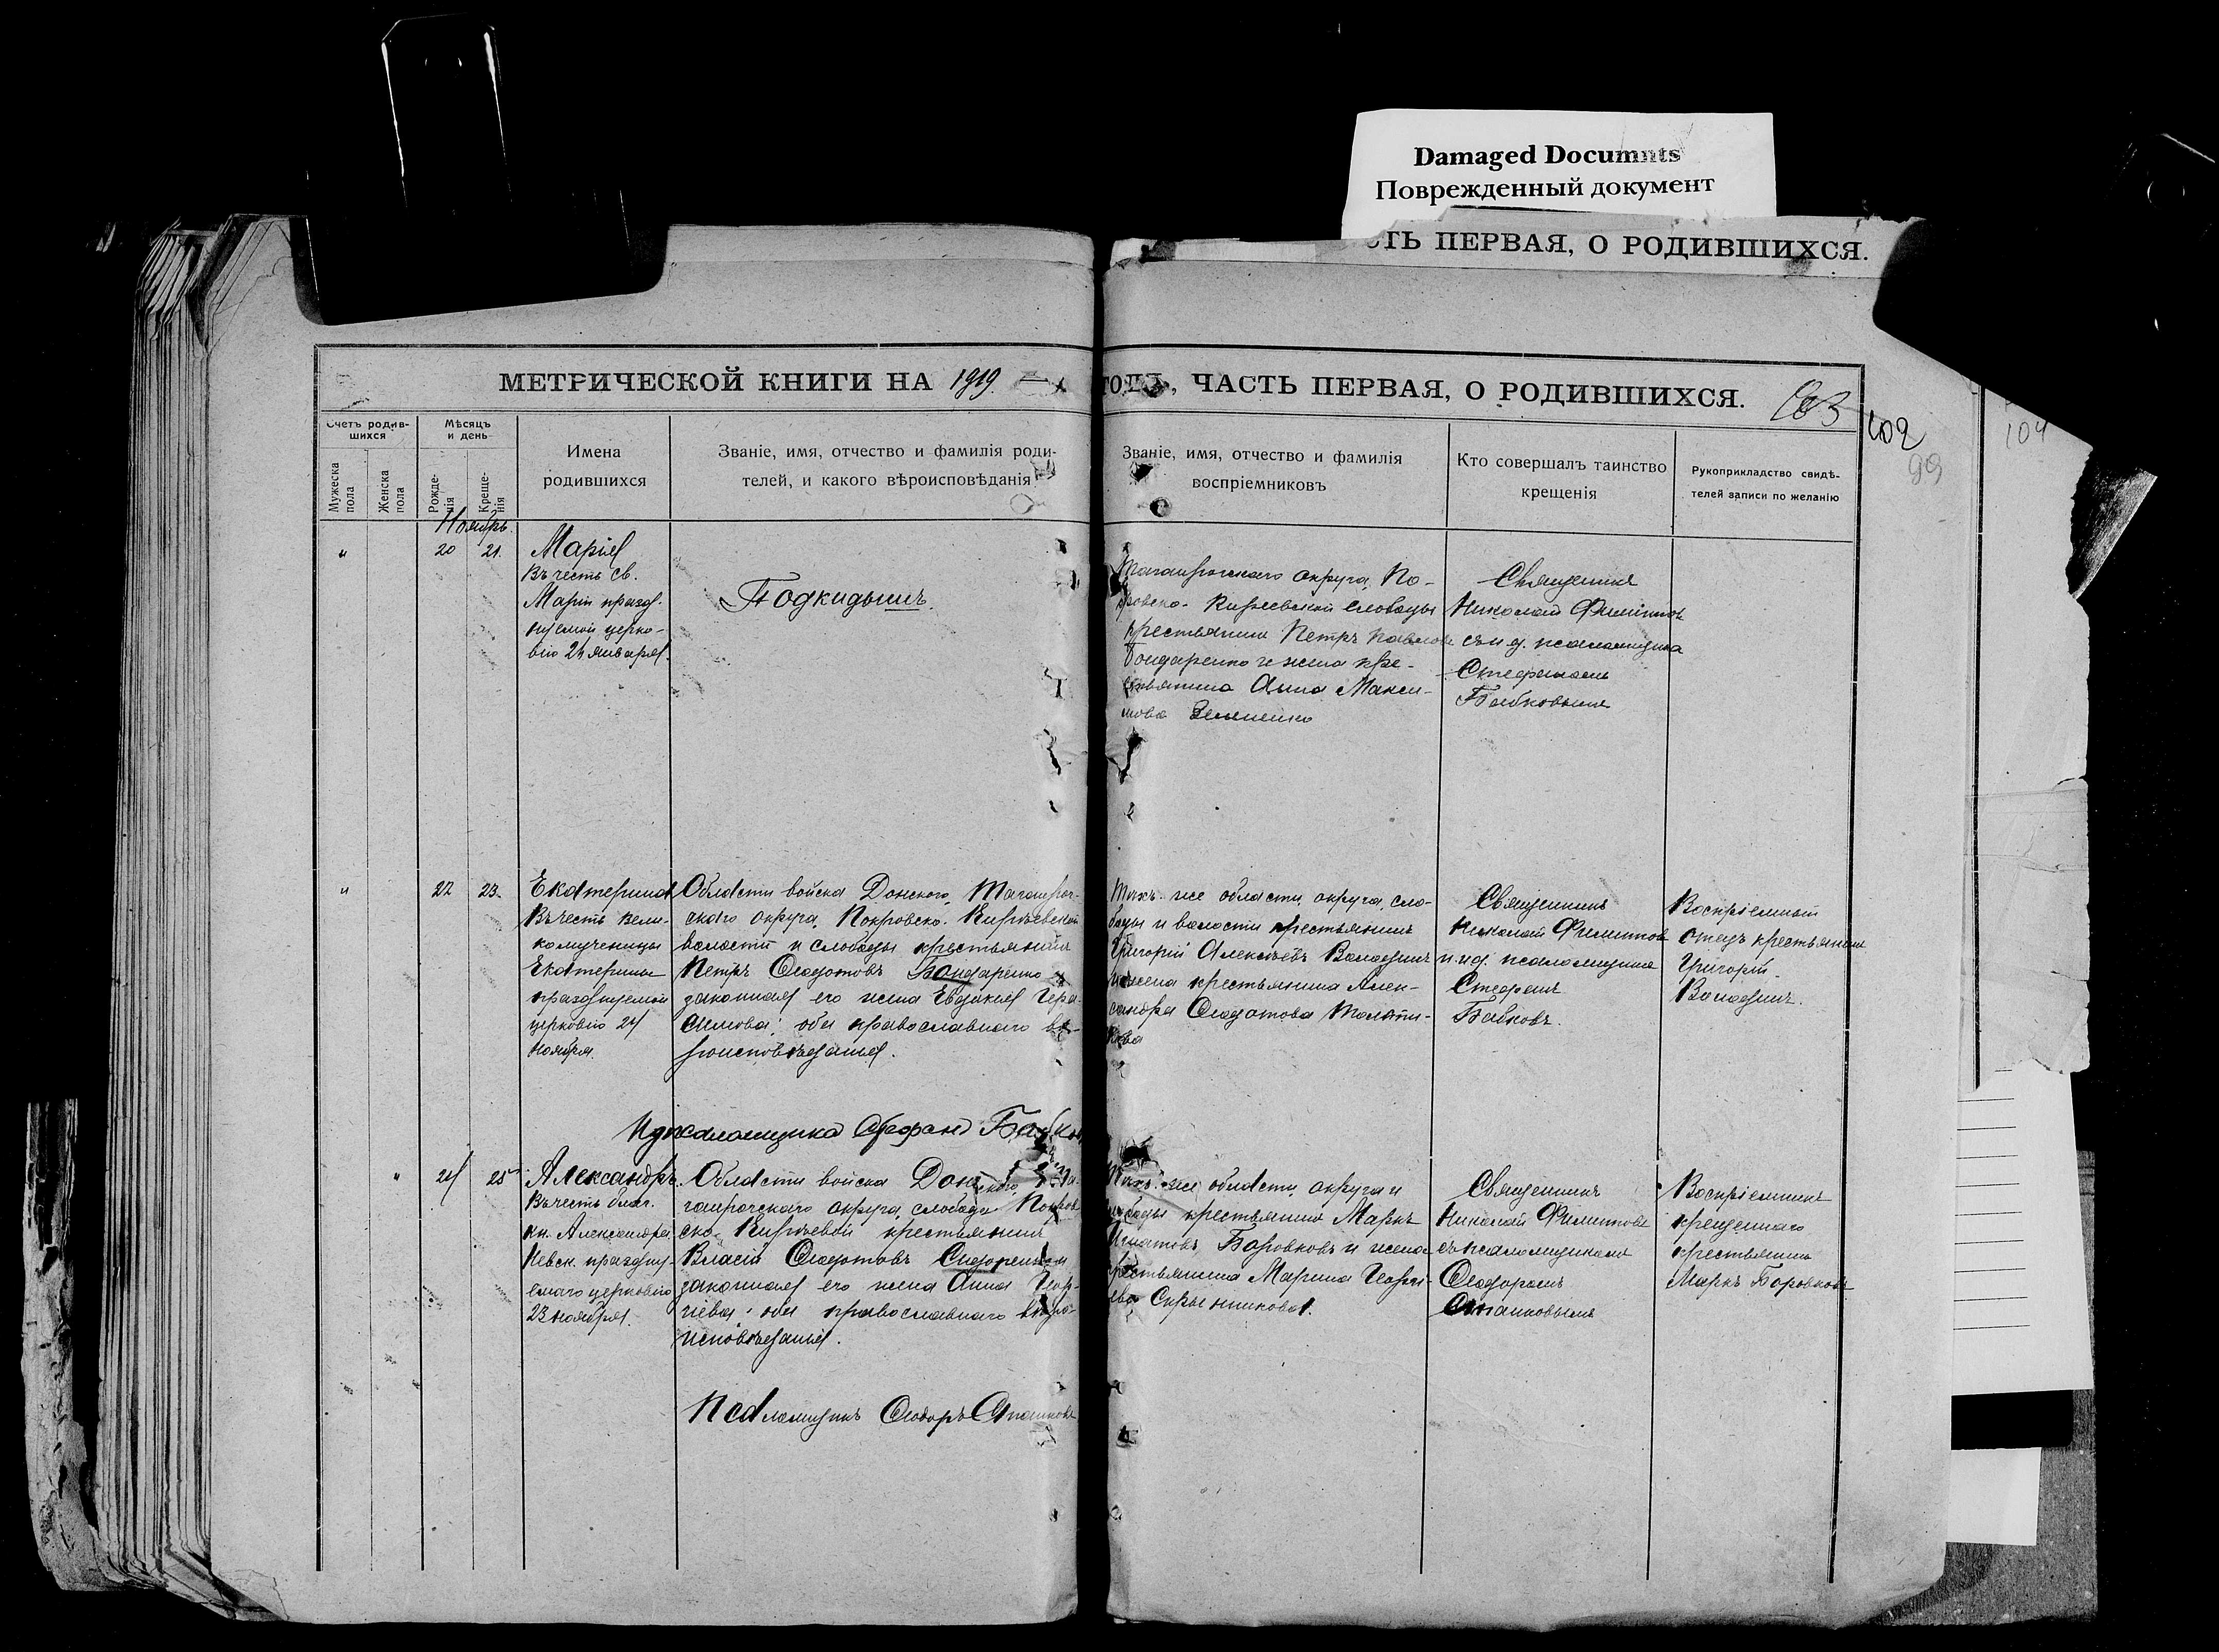 Damaged Documnts
Поврежденный документ
СТЬ ПЕРВАЯ, О РОДИВШИХСЯ.
МЕТРИЧЕСКОЙ КНИГИ НА 1919
ГОДЪ, ЧАСТЬ ПЕРВАЯ, О РОДИВШИХСЯ.
103
102
99
104
Счетъ родив-
шихся
Мужеска
пола
Женска
пола
Мѣсяцъ
и день
Рожде-
нія
Креще-
нія
Имена
родившихся
Званіе, имя, отчество и фамилія роди-
телей, и какого вѣроисповѣданія
Званіе, имя, отчество и фамилія
воспріемниковъ
Кто совершалъ таинство
крещенія
Рукоприкладство свидѣ-
телей записи по желанію
Ноябрь.
" 20 21.
Марія
Въ честь св.
Маріи празд-
нуемой церко-
вію 24 января.
Подкидышъ.
Таганрогскаго округа, По-
кровско-Кирѣевской слободы
крестьянинъ Петръ Павловъ
Бондаренко и жена кре-
стьянина Анна Макси-
мова
Священникъ
Николай Филиппов
съ и.д. псаломщика
Стефаномъ
Бабковымъ
" 22 23.
Екатерина
Въ честь вели-
комученицы
Екатерины
празднуемой
церковію 24
ноября.
Области войска Донского, Таганрог-
скаго округа, Покровско-Кирѣевской
волости и слободы крестьянинъ
Петръ Ѳедотовъ Бондаренко и
законная его жена Евдокія Гера-
симова; оба православнаго вѣ-
роисповѣданія.
Тѣхъ-же области, округа, сло-
боды и волости крестьянинъ
Григорій Алексѣевъ Володинъ
и жена крестьянина Алек-
сандра Ѳедотова
Священникъ
Николай Филиппов
и и.д. псаломщика
Стефанъ
Бабковъ.
Воспріемный
отецъ крестьянинъ
Григорій
Володинъ.
Ид псаломщика Стефанъ Бабков
" 24 25
Александръ.
Въ честь благ.
кн. Александра
Невск. праздну-
емаго церковію
23 ноября.
Области войска Донского, Та-
ганрогскаго округа, слободы Покров-
ско-Кирѣевой крестьянинъ
Власій Ѳедотовъ Сидоренко и
законная его жена Анна Геор-
гіева; оба православнаго вѣро-
исповѣданія.
Тѣхъ-же области, округа и
слободы крестьянинъ Маркъ
Игнатовъ Боровковъ и жена
крестьянина Марина Георгі-
ева Скрынникова.
Священникъ
Николай Филиппов
съ псаломщикомъ
Ѳедоромъ
Стпаковымъ
Воспріемникъ
крещеннаго
крестьянинъ
Маркъ Боровковъ
Псаломщикъ Ѳедоръ